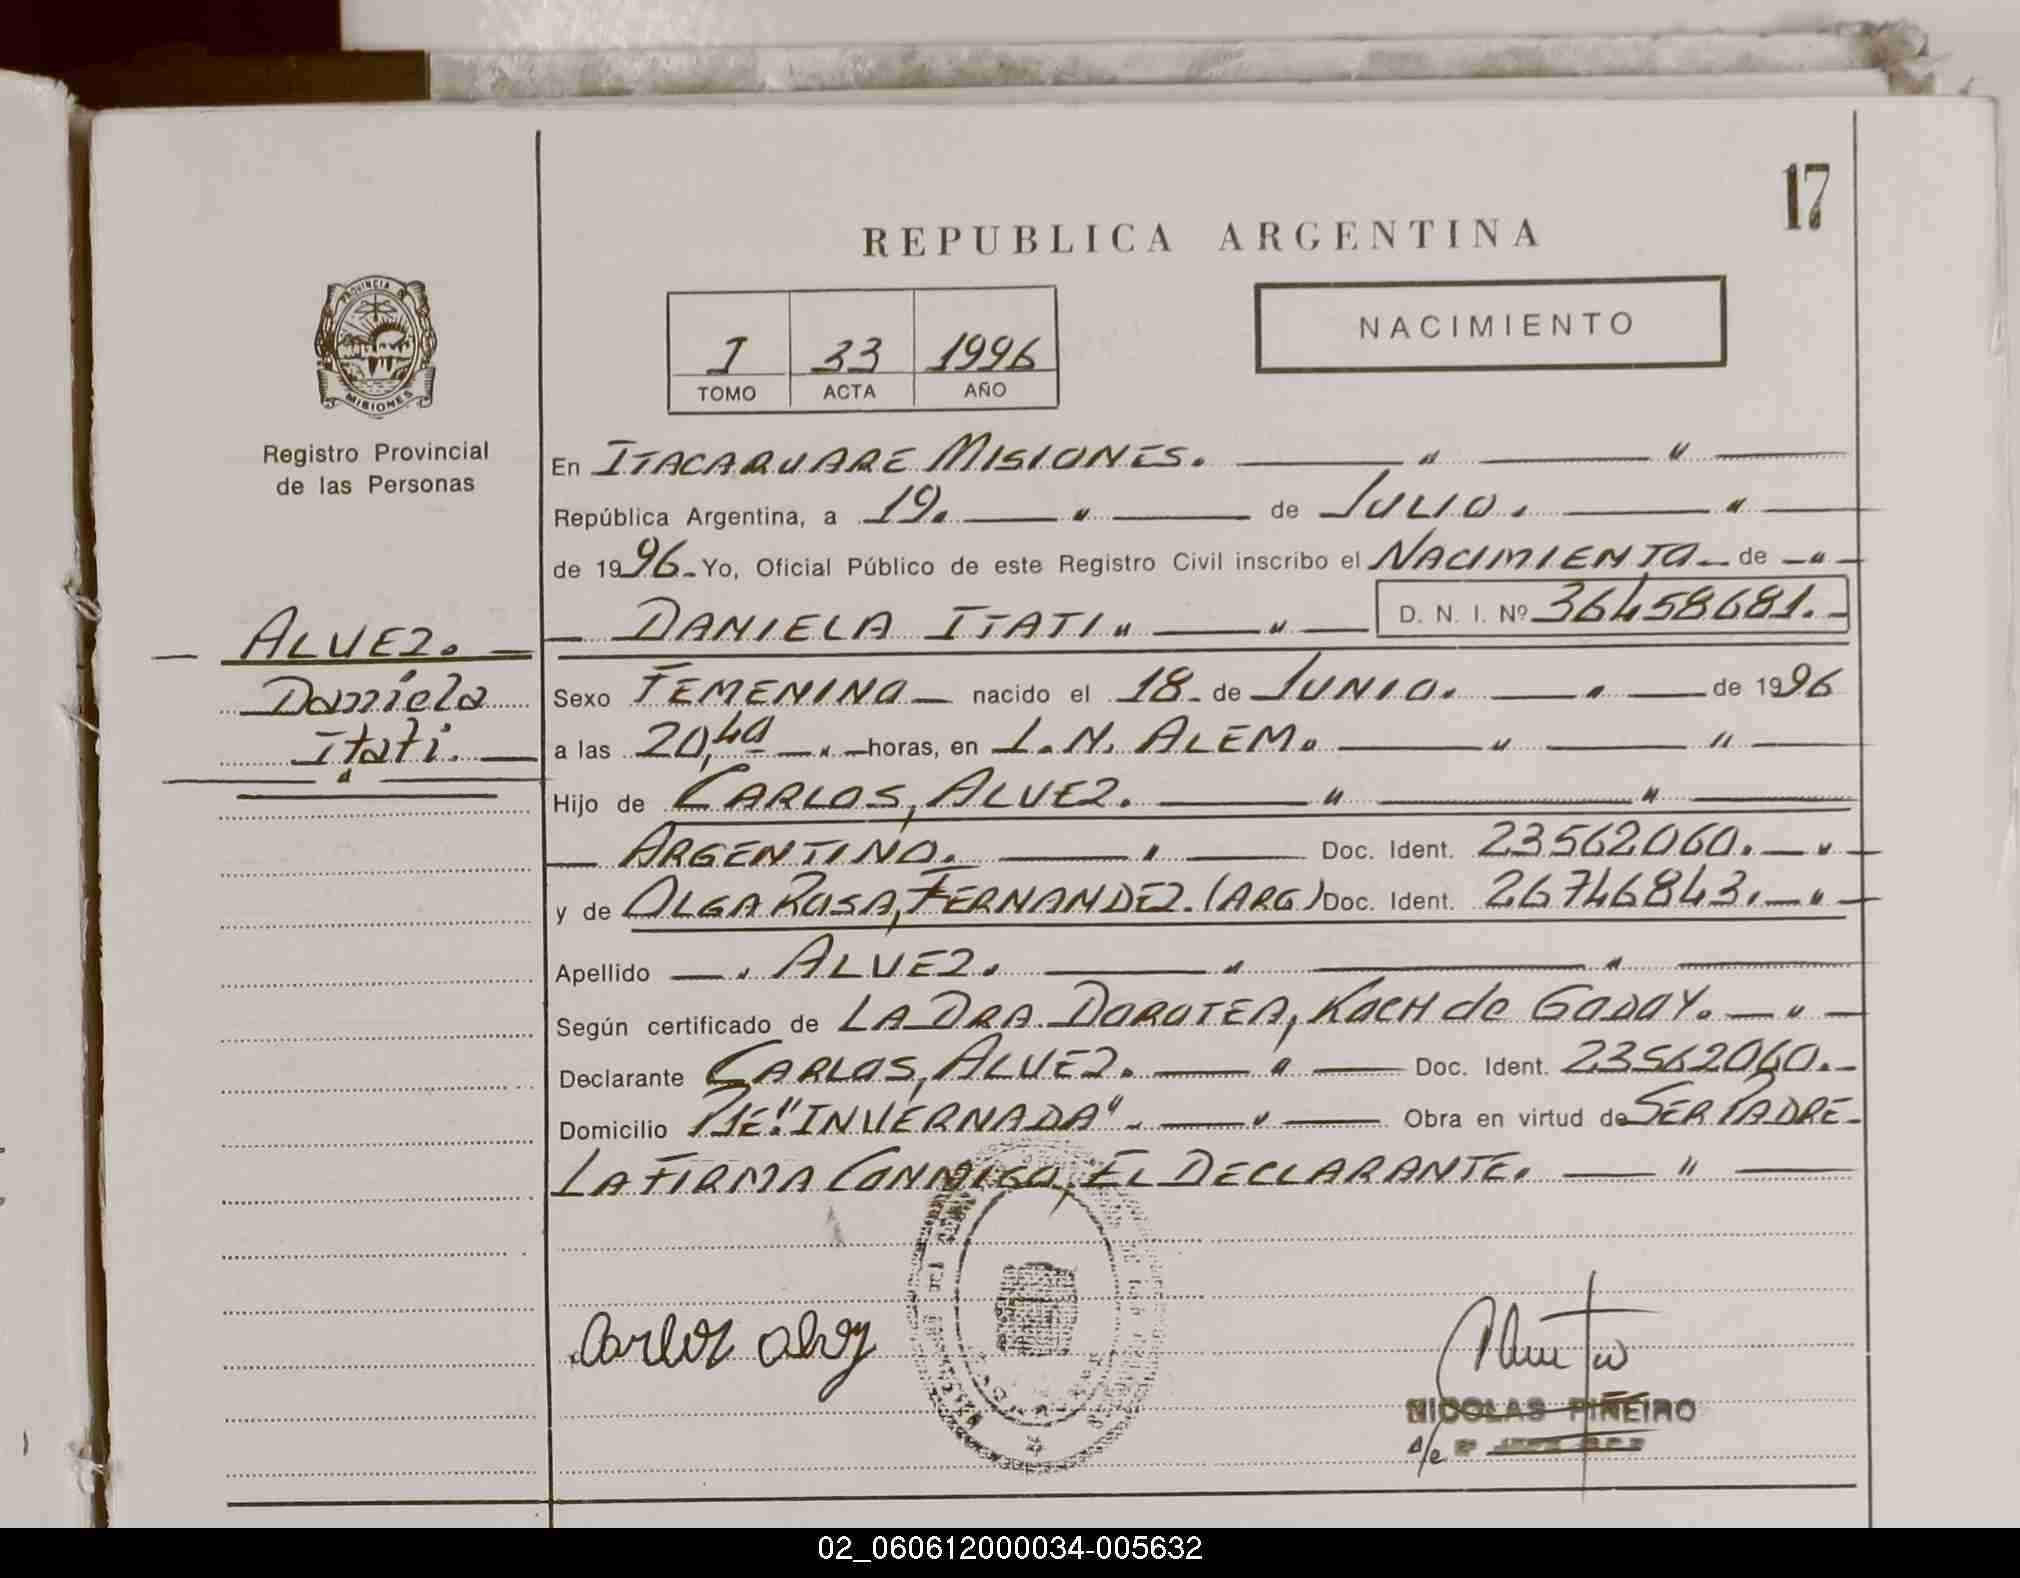 17
REPUBLICA ARGENTINA
NACIMIENTO
I 33 1996
TOMO ACTA AÑO
PROVINCIA DE
MISIONES
Registro Provincial
de las Personas
En ITACARUARE MISIONES. " "
República Argentina, a 19. " de JULIO. "
de 1996- Yo, Oficial Público de este Registro Civil inscribo el NACIMIENTO - de "
- DANIELA ITATI " " D. N. I. Nº 36458681.-
- ALVEZ. -
Daniela
Itati. -
"
Sexo FEMENINO - nacido el 18 - de JUNIO. " de 1996
a las 20,40 " horas, en L.N. ALEM. " "
Hijo de CARLOS, ALVEZ. " "
- ARGENTINO. " Doc. Ident. 23562060. - "
y de OLGA ROSA, FERNANDEZ. (ARG) Doc. Ident. 26746843. - " -
Apellido - " ALVEZ. " "
Según certificado de LA DRA. DOROTEA, KOCH de GODOY. - " -
Declarante CARLOS, ALVEZ. " Doc. Ident. 23562060. -
Domicilio PJE "INVERNADA". " Obra en virtud de SER PADRE -
LA FIRMA CONMIGO, EL DECLARANTE. "
Carlos alvez
NICOLAS PIÑEIRO
a/c
02_060612000034-005632